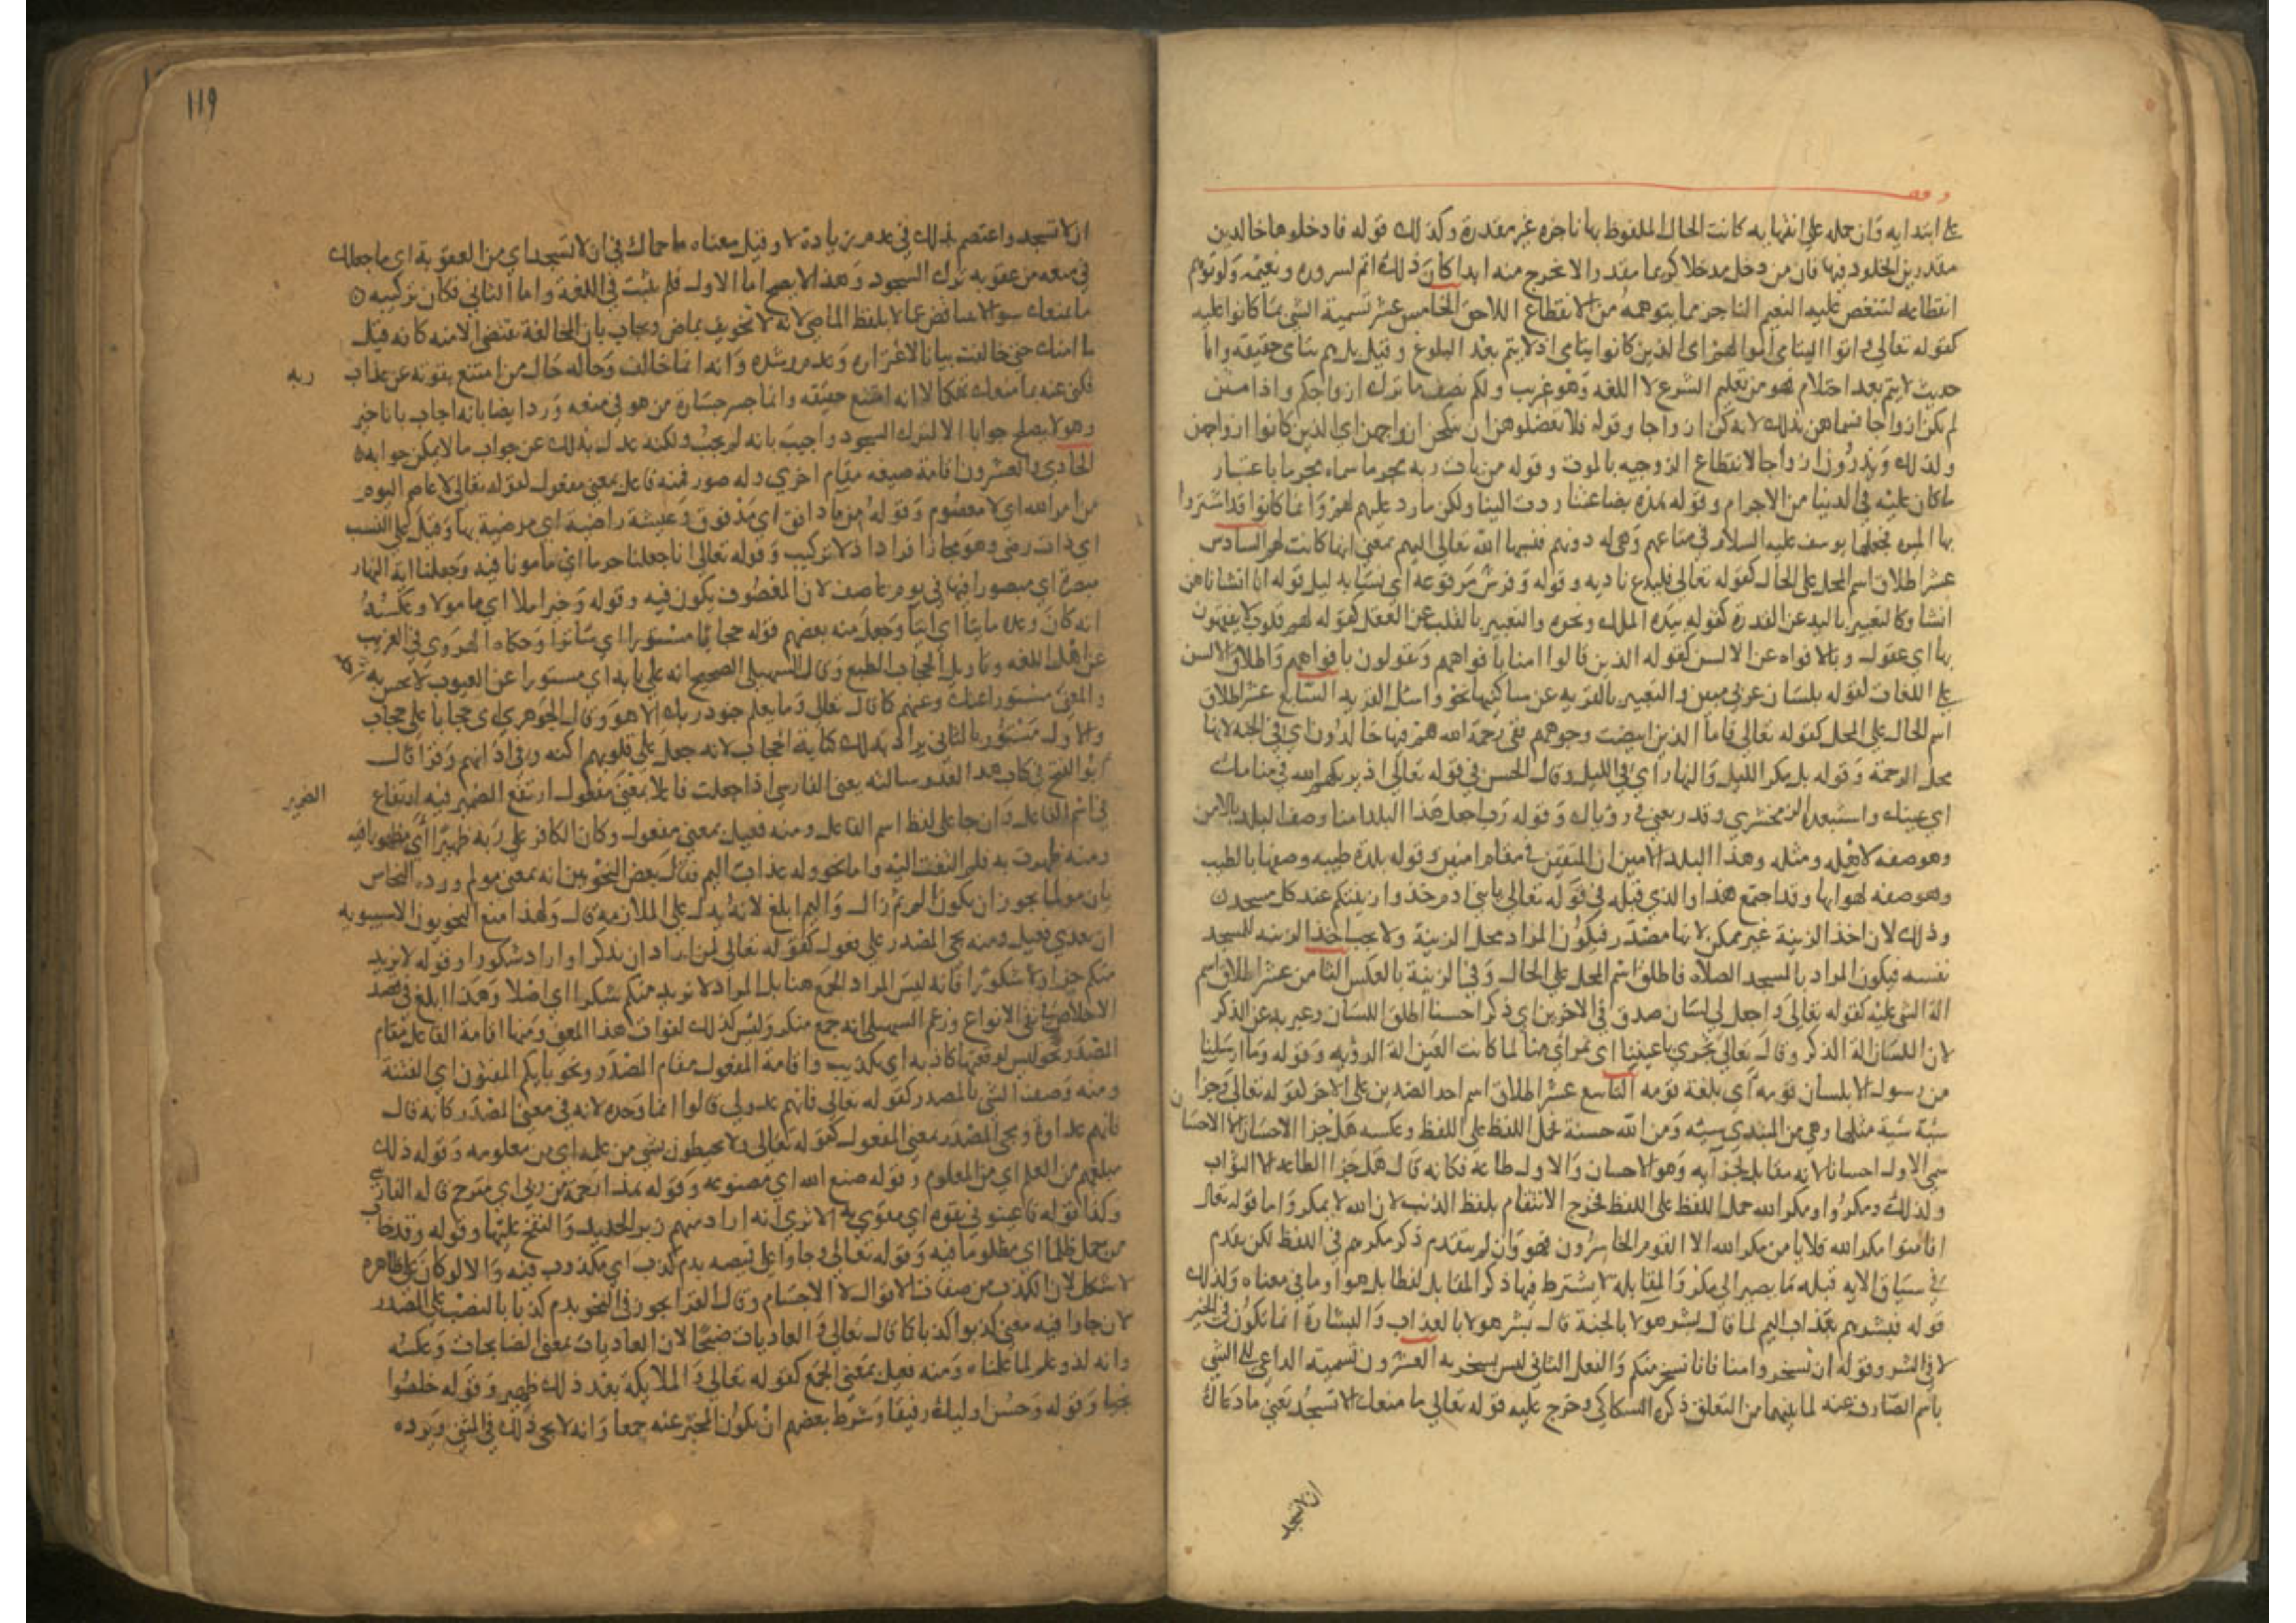 وقف
على ابتدايه وان حمله على انتهايه كانت الحال الملفوظ بها ناجزه غير مقدرة وكذلك قوله فادخلوها خالدين
مقدرين الخلود فيها فان من دخل مدخلا كريما مقدرا لا يخرج منه ابدا كان ذلك اتم لسروره ونعيمه ولو توهم
انقطاعه لتنغص عليه النعيم الناجز مما يتوهمه من الانقطاع اللاحق الخامس عشر تسمية الشي بما كانوا عليه
كقوله تعالى واتوا اليتامى اموالهم اي الذين كانوا يتامى اذ لا يتم بعد البلوغ وقيل بل هم يتامى حقيقه واما
حديث لا يتم بعد احتلام فهو من تعليم الشرع لا اللغه وهو غريب ولكم نصف ما ترك ازواجكم واذا متن
لم يكن ازواجا فسماهن بذلك لانه كن ازواجا وقوله فلا تعضلوهن ان ينكحن ازواجهن اي الذين كانوا ازواجهن
ولذلك ويذرون ازواجا لانقطاع الزوجيه بالموت وقوله من يات ربه مجرما سماه مجرما باعتبار
ما كان عليه في الدنيا من الاجرام وقوله هذه بضاعتنا ردت الينا ولكن ما رد عليهم وانما كانوا قد اشتروا
بها الميره فجعلها يوسف عليه السلام في متاعهم وهي له دونهم فنسبها الله تعالى اليهم بمعنى انها كانت لهم السادس
عشر اطلاق اسم المحل على الحال كقوله تعالى فليدع ناديه وقوله وفرش مرفوعه اي نسايه بدليل قوله انا انشاناهن
انشا وكالتعبير باليد عن القدرة كقوله بيده الملك ونحوه والتعبير بالقلب عن العقل كقوله لهم قلوب لا يفقهون
بها اي عقول وبالافواه عن الالسن كقوله الذين قالوا امنا بافواههم وتقولون بافواههم واطلاق الالسن
على اللغات كقوله بلسان عربي مبين والتعبير بالقريه عن ساكنيها نحو واسال القريه السابع عشر اطلاق
اسم الحال على المحل كقوله تعالى فاما الذين ابيضت وجوههم ففي رحمة الله هم فيها خالدون اي في الجنه لانها
محل الرحمة وقوله بل مكر الليل والنهار اي في الليل وقال الحسن في قوله تعالى اذ يريكهم الله في منامك
اي عينك واستبعده الزمخشري وقدر يعني في روياك وقوله رب اجعل هذا البلد امنا وصف البلد بالامن
وهو صفه لاهله ومثله وهذا البلد الامين ان المتقين في مقام امين وقوله بلدة طيبه وصفها بالطيب
وهو صفه لهوايها وقد اجتمع هذا والذي قبله في قوله تعالى يا بني ادم خذوا زينتكم عند كل مسجد
وذلك لان اخذ الزينة غير ممكن لانها مصدر فيكون المراد محل الزينة ولا يجب اخذ الزينه للمسجد
نفسه فيكون المراد بالمسجد الصلاه فاطلق اسم المحل على الحال وفي الزينة بالعكس الثامن عشر اطلاق اسم
الة الشي عليه كقوله تعالى واجعل لي لسان صدق في الاخرين اي ذكرا حسنا اطلق اللسان وعبر به عن الذكر
لان اللسان الة الذكر وقال تعالى تجري باعيننا اي بمراي منا لما كانت العين الة الرويه وقوله وما ارسلنا
من رسول الا بلسان قومه اي بلغة قومه التاسع عشر اطلاق اسم احد الضدين على الاخر كقوله تعالى وجزا
سيئة سيئة مثلها وهي من المبتدي سيئه ومن الله حسنة فحمل اللفظ على اللفظ وعكسه هل جزا الاحسان الا الاحسان
سمي الاول احسانا لانه مقابل لجزايه وهو الاحسان والاول طاعة فكانه قال هل جزا الطاعه الا الثواب
ولذلك ومكروا ومكر الله حملا للفظ على اللفظ فخرج الانتقام بلفظ الذنب لان الله لا يمكر واما قوله تعالى
افامنوا مكر الله فلا يامن مكر الله الا القوم الخاسرون فهو وان لم يتقدم ذكر مكرهم في اللفظ لكن تقدم
في سياق الايه قبله ما يصير الى مكر والمقابله لا يشترط فيها ذكر المقابل لفظا بل هو او ما في معناه ولذلك
قوله فبشرهم بعذاب اليم لما قال بشر هولا بالجنة قال بشر هولا بالعذاب والبشارة انما تكون في الخير
لا في الشر وقوله ان تسخروا منا فانا نسخر منكم والفعل الثاني ليس بسخريه العشرون تسميه الداعي الى الشي
باسم الصارف عنه لما بينهما من التعلق ذكره السكاكي وخرج عليه قوله تعالى ما منعك الا تسجد يعني ما دعاك
ان لا تسجد
١١٩
ان لا تسجد واعتصم بذلك في عدم زيادة لا وقيل معناه ما حماك في ان لا تسجد اي من العقوبة اي ما جعلك
في منعه من عقوبه ترك السجود وهذا لا يصح اما الاول فلم يثبت في اللغة واما الثاني فكان تركيبه
ما يمنعك سوالا عما لا بلفظ الماضي لانه لا تخويف بماض ويجاب بان المخالفة تقتضي الامنه كانه قيل
ما امنك حتى خالفت بيانا لاغتراره وعدم رشده وانه انما خالف وحاله حال من امتنع بقوته عن عذاب
ربه
فكنى عنه بما منعك تهكما لا انه امتنع حقيقه وانما جسر جسارة من هو في منعه ورد ايضا بانه اجاب بانا خير
وهو لا يصلح جوابا الا لترك السجود واجيب بانه لم يجب ولكنه عدل بذلك عن جواب ما لا يمكن جوابه
الحادي والعشرون اقامة صيغه مقام اخرى وله صور فمنه فاعل بمعنى مفعول كقوله تعالى لا عاصم اليوم
من امر الله اي لا معصوم وقوله من ماء دافق اي مدفوق وعيشة راضية اي مرضية بها وقيل على النسب
اي ذات رضى وهو مجاز افراد لا تركيب وقوله تعالى انا جعلنا حرما امنا اي مامونا فيه وجعلنا ايه النهار
مبصرة اي مبصورا فيها في يوم عاصف لان المعصوف يكون فيه وقوله وخير املا اي مامولا وعكسه
انه كان وعده ماتيا اي اتيا وجعل منه بعضهم قوله حجابا مستورا اي ساترا وحكاه الهروي في الغريب
عن اهل اللغه وتاويل الحجاب الطبع وقال السهيلي الصحيح انه على بابه اي مستورا عن العيون لا يحس به
والمعنى مستورا عنك وعنهم كما قال تعالى وما يعلم جنود ربك الا هو وقال الجوهري اي حجابا على حجاب
والاول مستور بالثاني يراد بذلك كثافة الحجاب لانه جعل على قلوبهم اكنه وفي اذانهم وقرا قال
ابو الفتح في كتاب هذا القد وسالته يعني الفارسي اذا جعلت فاعلا بمعنى مفعول ارتفع الضمير فيه ارتفاع
الضمير
في اسم الفاعل وان جا على لفظ اسم الفاعل ومنه فعيل بمعنى مفعول وكان الكافر على ربه ظهيرا اي مظهورا فيه
ومنه ظهرت به فلم التفت اليه واما نحو وله عذاب اليم فقال بعض النحويين انه بمعنى مولم ورده النحاس
بان مولما يجوز ان يكون الم ثم زال واليم ابلغ لانه يدل على الملازمة قال ولهذا منع النحويون الا سيبويه
ان يعدى فعيل ومنه مجي المصدر على فعول كقوله تعالى لمن اراد ان يذكر او اراد شكورا وقوله لا نريد
منكم جزاء ولا شكورا فانه ليس المراد الجمع هنا بل المراد لا نريد منكم شكرا اصلا وهذا ابلغ في قصد
الاخلاص في الانواع وزعم السهيلي انه جمع شكر وليس كذلك لفوات هذا المعنى ومنها اقامة الفاعل مقام
المصدر نحو ليس لوقعتها كاذبه اي تكذيب واقامة المفعول مقام المصدر ونحو بايكم المفتون اي الفتنة
ومنه وصف الشي بالمصدر كقوله تعالى فانهم عدو لي قالوا انما وحده لانه في معنى المصدر كانه قال
فانهم عداوة ومجي المصدر بمعنى المفعول كقوله تعالى ولا يحيطون بشي من علمه اي من معلومه وقوله ذلك
مبلغهم من العلم اي من المعلوم وقوله صنع الله اي مصنوعه وقوله هذا رحمة من ربي اي مترح قاله الفارسي
وكذا قوله فاعينوني بقوة اي مقوي به الا ترى انه اراد منهم زبر الحديد والنفخ عليها وقوله وقد خاب
من حمل ظلما اي مظلوما فيه وقوله تعالى وجاوا على قميصه بدم كذب اي مكذوب فيه والا لو كان على ظاهره
لاشكل لان الكذب من صفات الاقوال لا الاجسام وقال الفرا يجوز في النحو بدم كذبا بالنصب على المصدر
لان جاوا فيه معنى كذبوا كذبا كما قال تعالى والعاديات ضبحا لان العاديات بمعنى الضابحات وعكسه
وانه لذو علم لما علمناه ومنه فعيل بمعنى الجمع كقوله تعالى والملايكة بعد ذلك ظهير وقوله خلصوا
نجيا وقوله وحسن اوليك رفيقا وشرط بعضهم ان يكون المخبر عنه جمعا وانه لا يجي ذلك في المثنى ويرده